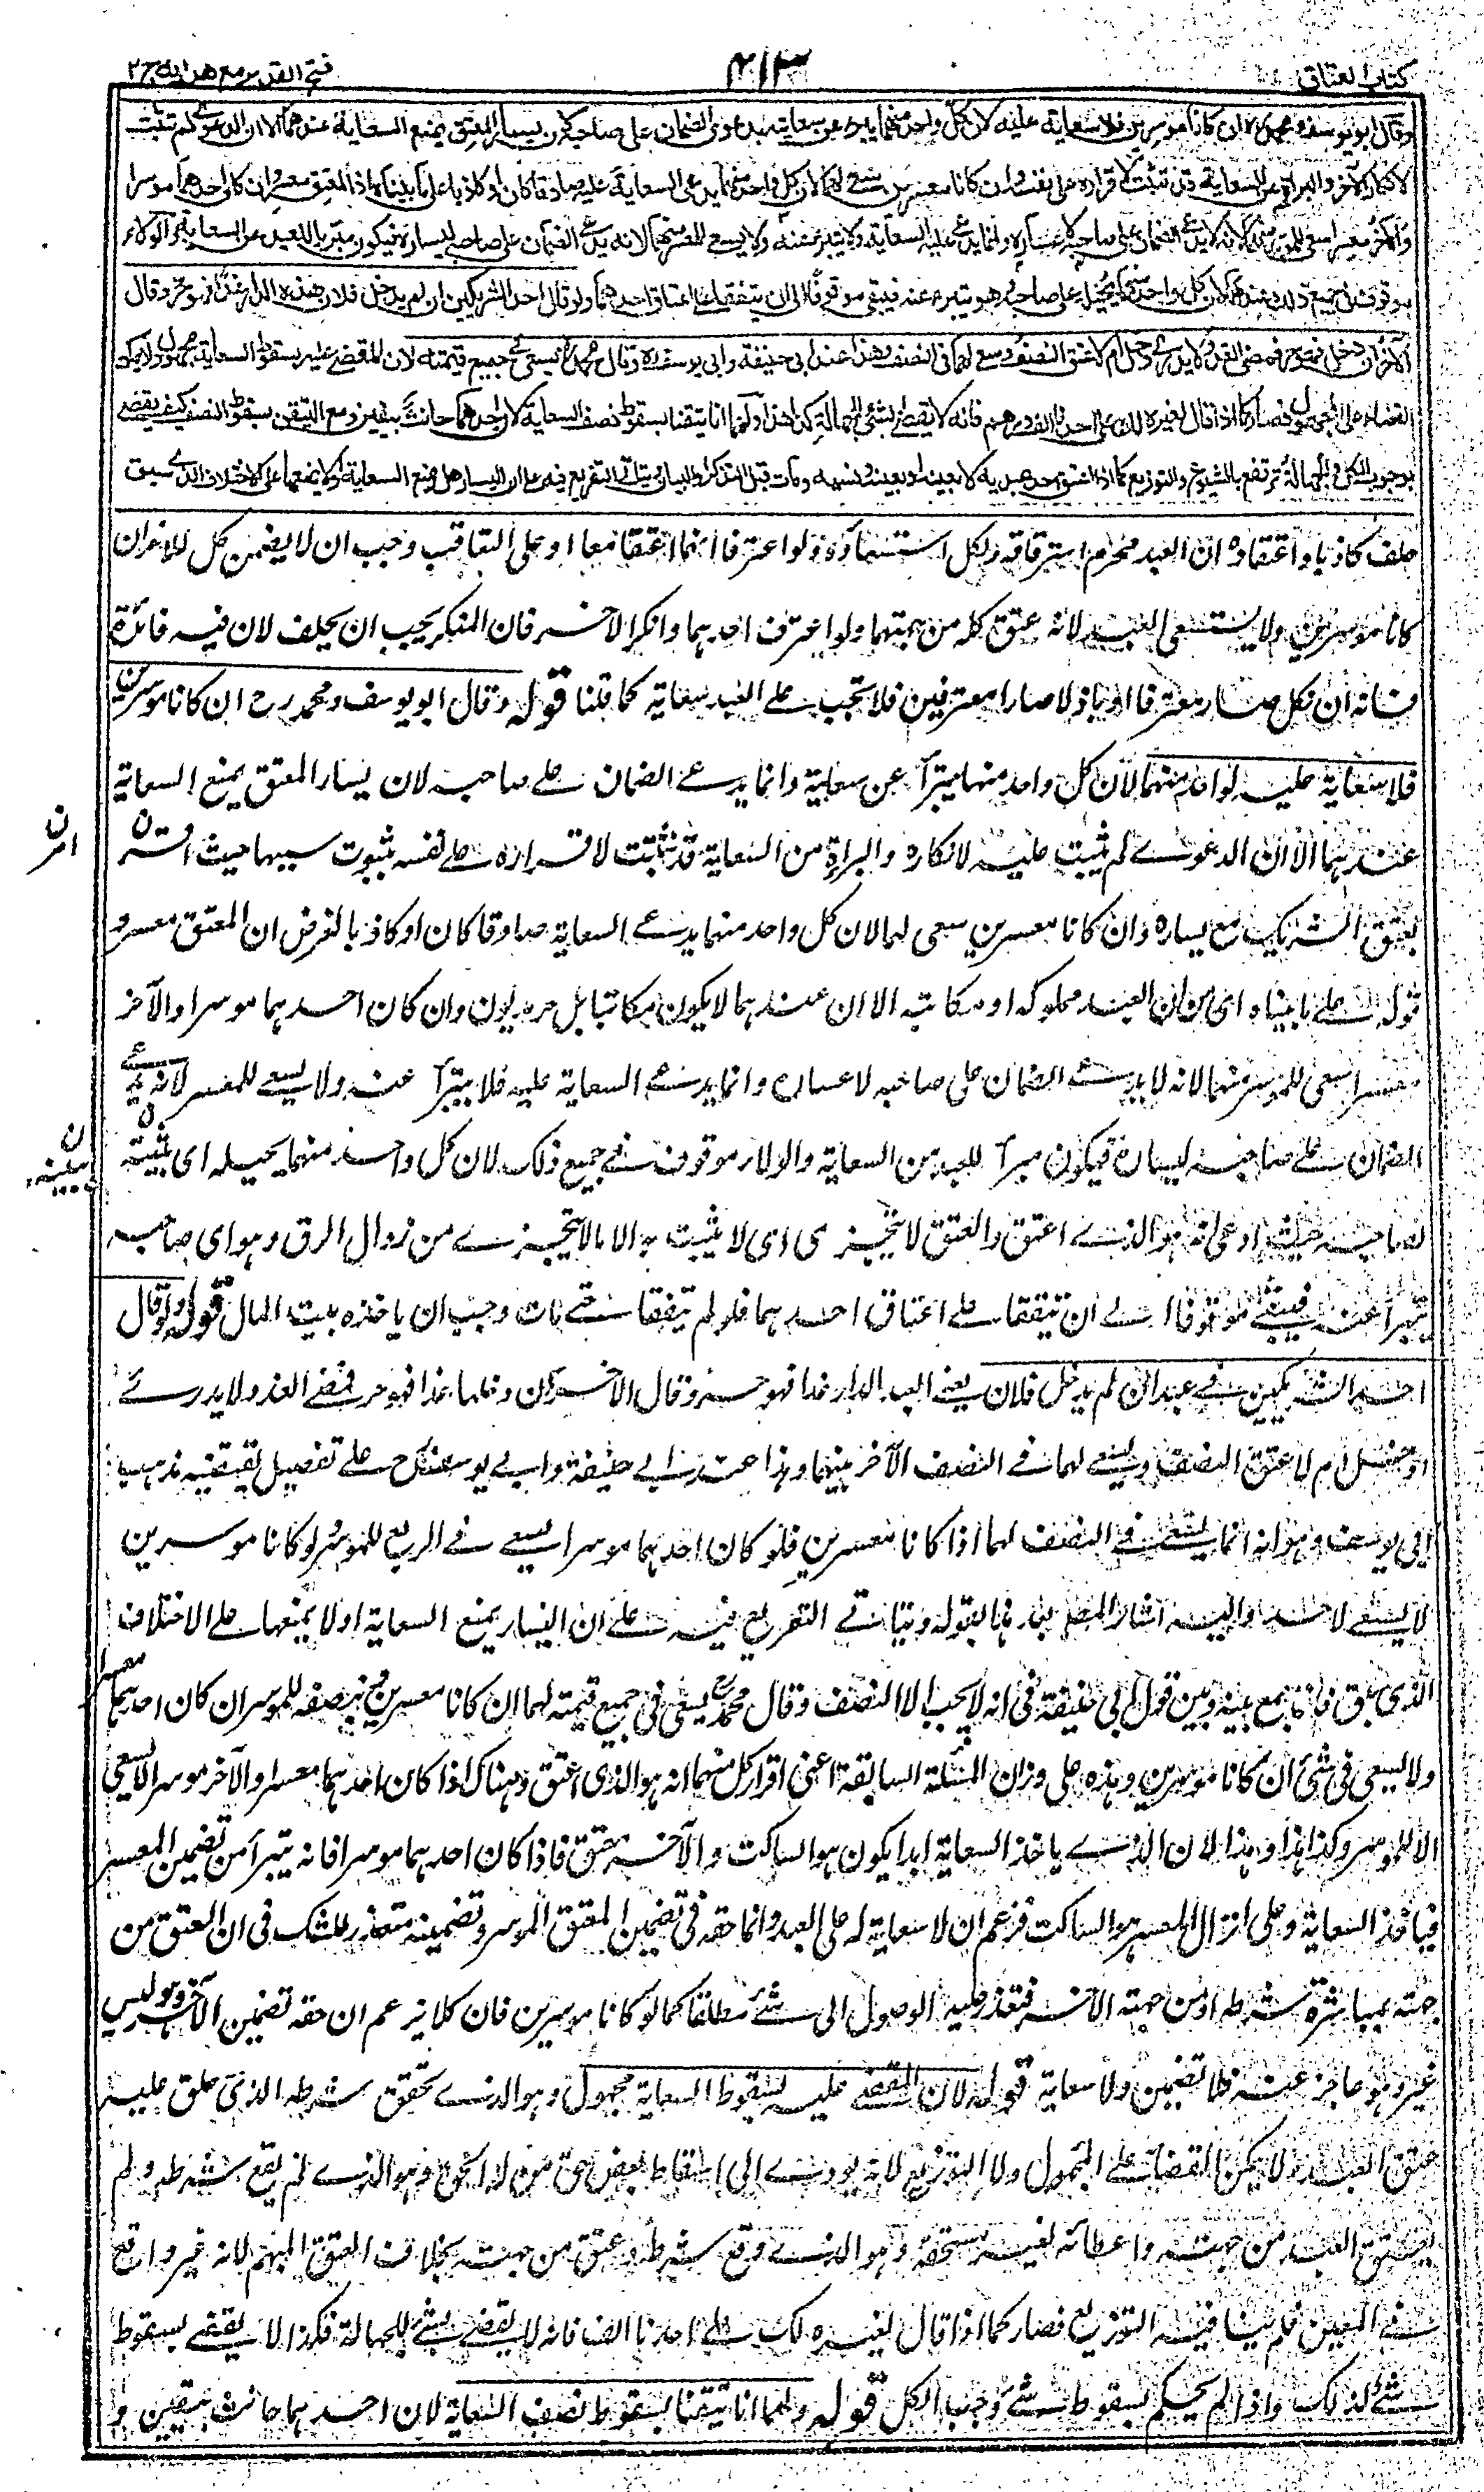 كتاب العتاق
٤١٣
فتح القدير مع هدايه ج ٢
وقال ابو يوسف ومحمد ان كانا موسرين فلا سعاية عليه لان كل واحد منهما يبرء عن سعايته بدعوى الضمان على صاحبه لان يسار المعتق يمنع السعاية عندهما الا ان الدعوى لم تثبت
لانكار الآخر والبراءة عن السعاية قد تثبت لاقراره على نفسه وان كانا معسرين سعى لهما لان كل واحد منهما يدعى السعاية عليه صادقا كان او كاذبا على ما بيناه اذ المعتق معسر وان كان احدهما موسرا
والآخر معسرا سعى للموسر منهما لانه لا يدعى الضمان على صاحبه لاعساره وانما يدعى عليه السعاية ولا يتبرء عنه ولا يسعى للمعسر منهما لانه يدعى الضمان على صاحبه ليساره فيكون مبرئا للعبد عن السعاية والولاء
موقوف في جميع ذلك عندهما لان كل واحد منهما يحيله على صاحبه وهو يتبرء عنه فيبقى موقوفا الى ان يتفقا على اعتاق احدهما ولو قال احد الشريكين ان لم يدخل فلان هذه الدار غدا فهو حر وقال
الآخر ان دخل فهو حر فمضى الغد ولا يدرى دخل ام لا عتق النصف وسعى لهما في النصف وهذا عند ابى حنيفة وابى يوسف وقال محمد يسعى في جميع قيمته لان المقضى عليه بسقوط السعاية مجهول ولا يمكن
القضاء على المجهول فصار كما اذا قال لغيره لك على احدنا الف درهم فانه لا يقضى بشئ للجهالة كذا هذا ولهما انا تيقنا بسقوط نصف السعاية لان احدهما حانث بيقين ومع التيقن بسقوط النصف كيف يقضى
بوجوب الكل والجهالة ترتفع بالشيوع والتوزيع كما اذا اعتق احد عبديه لا بعينه او بعينه ونسيه ومات قبل التذكر او البيان ويتأتى التفريع فيه على ان اليسار هل يمنع السعاية او لا يمنعها على الاختلاف الذى سبق
حلف كاذبا واعتقاده ان العبد محرم استرقاقه ولكل استسعاؤه ولو اعترفا انهما اعتقا معا او على التعاقب وجب ان لا يضمن كل للآخر ان
كانا موسرين ولا يستسعى العبد لانه عتق كله من جهتهما ولو اعترف احدهما وانكر الآخر فان المنكر يجب ان يحلف لان فيه فائدة
فانه ان نكل صار معترفا او باذلا صارا معترفين فلا تجب على العبد سعاية كما قلنا قوله وقال ابو يوسف ومحمد رح ان كانا موسرين
فلا سعاية عليه لواحد منهما لان كل واحد منهما يتبرأ عن سعايته وانما يدعى الضمان على صاحبه لان يسار المعتق يمنع السعاية
عندهما الا ان الدعوى لم تثبت عليه لانكاره والبراءة من السعاية قد تثبت لاقراره على نفسه بثبوت سببها حيث اقر
بعتق الشريك مع يساره وان كانا معسرين سعى لهما لان كل واحد منهما يدعى السعاية صادقا كان او كاذبا لفرض ان المعتق معسر و
قوله على ما بيناه اى من ان العبد مملوكه او مكاتبه الا ان عندهما لا يكون مكاتبا بل حر مديون وان كان احدهما موسرا والآخر
معسرا سعى للموسر منهما لانه لا يدعى الضمان على صاحبه لاعساره وانما يدعى السعاية عليه فلا يتبرأ عنه ولا يسعى للمعسر لانه يدعى
الضمان على صاحبه ليساره فيكون مبرأ للعبد من السعاية والولاء موقوف في جميع ذلك لان كل واحد منهما يحيله اى يثبته
لصاحبه حيث ادعى انه هو الذى اعتق والعتق لا يتجزى اى لا يثبت به الا ما لا يتجزى من زوال الرق وهو اى صاحبه
يتبرأ عنه فيبقى موقوفا الى ان يتفقا على اعتاق احدهما فلو لم يتفقا حتى مات وجب ان يأخذه بيت المال قوله ولو قال
احد الشريكين في عبد ان لم يدخل فلان يعنى الى الدار غدا فهو حر وقال الآخر ان دخلها غدا فهو حر فمضى الغد ولا يدرى
ادخل ام لا عتق النصف ويسعى لهما في النصف الآخر بينهما وهذا عند ابى حنيفة وابى يوسف رح على تفصيل يقتضيه مذهب
ابى يوسف وهو انه انما يسعى في النصف لهما اذا كانا معسرين فلو كان احدهما موسرا يسعى في الربع للموسر ولو كانا موسرين
لا يسعى لاحد واليه اشار المصنف بقوله ويتأتى التفريع فيه على ان اليسار يمنع السعاية او لا يمنعها على الاختلاف
الذى سبق فانما يجمع بينه وبين قول ابى حنيفة في انه لا يجب الا النصف وقال محمد رح يسعى في جميع قيمته لهما ان كانا معسرين وفى نصفه للموسر ان كان احدهما معسرا
ولا يسعى في شئ ان كانا موسرين وهذه على وزان المسئلة السابقة اعنى اقرار كل منهما انه هو الذى اعتق وهناك اذا كان احدهما معسرا والآخر موسرا لا يسعى
الا للموسر وكذا هذا وهذا لان الذى يأخذ السعاية ابدا يكون هو الساكت والآخر معتق فاذا كان احدهما موسرا فانه يتبرأ من تضمين المعسر
فيأخذ السعاية وعلى انزال المعسر هو الساكت فزعم ان لا سعاية له على العبد وانما حقه في تضمين المعتق الموسر وتضمينه متعذر للشك في ان العتق من
جهته بمباشرة شرطه او من جهة الآخر فتعذر عليه الوصول الى شئ مطلقا كما لو كانا موسرين فان كلا يزعم ان حقه تضمين الآخر وهو ليس
غير وهو عاجز عنه فلا تضمين ولا سعاية قوله لان المقضى عليه بسقوط السعاية مجهول وهو الذى تحقق شرطه الذى علق عليه
عتق العبد ولا يمكن القضاء على المجهول ولا التوزيع لانه يؤدى الى اسقاط بعض حق من له الحق وهو الذى لم يقع شرطه ولم
يعتق العبد من جهته واعطائه لغير مستحقه وهو الذى وقع شرطه وعتق من جهته بخلاف العتق المبهم لانه غير واقع
في المعين فلم ينافيه التوزيع فصار كما اذا قال لغيره لك على احدنا الف فانه لا يقضى بشئ للجهالة فكذا لا يقضى بسقوط
شئ لذلك واذا لم يحكم بسقوط شئ وجب الكل قوله ولهما انا تيقنا بسقوط نصف السعاية لان احدهما حانث بيقين و